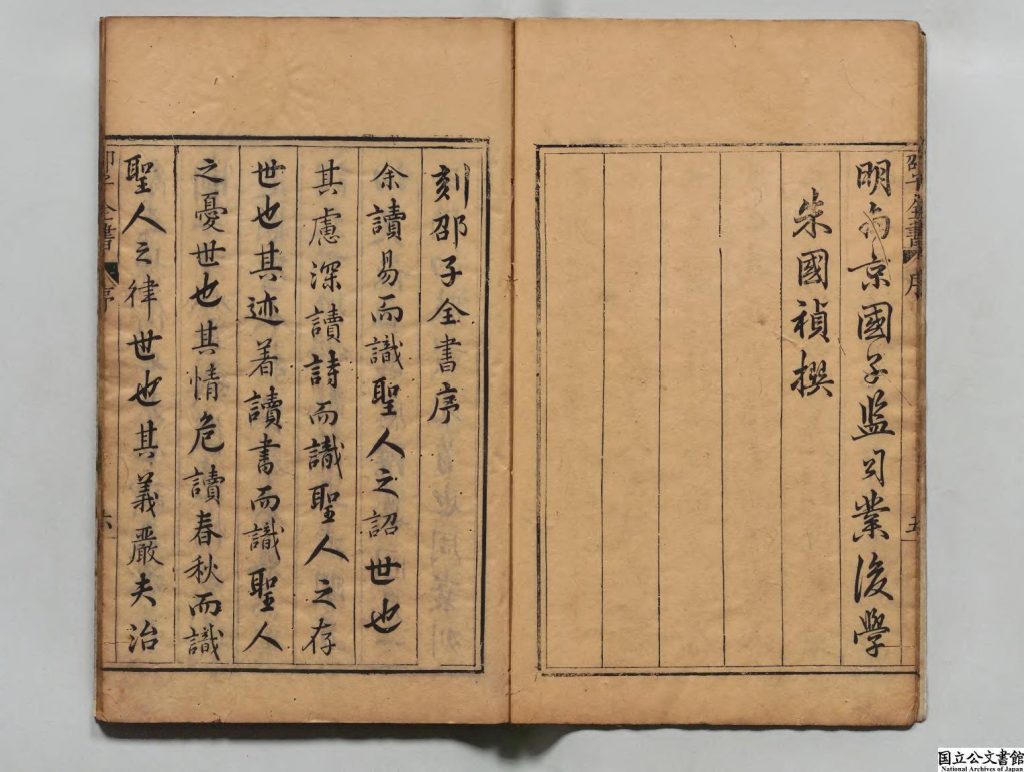 明南京國子监司業後學
朱國禎撰
五
刻邵子全書序
余讀易而識聖人之詔世也
其慮深讀詩而識聖人之存
世也其迹着讀書而識聖人
之憂世也其情危讀春秋而識
聖人之律世也其義嚴夫治
全書
序
六
国立公文書館
National Archives of Japan